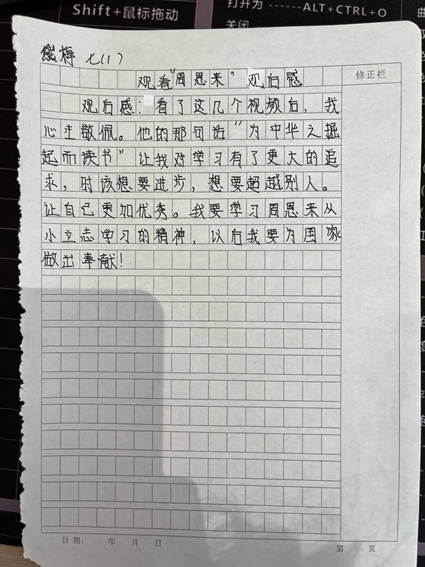 Shift+鼠标拖动
打开为 ------ALT+CTRL+O
关闭
七(1)
观看"周恩来"观后感
修正栏
观后感:看了这几个视频后,我
心生敬佩。他的那句话"为中华之掘
起而读书"让我对学习有了更大的追
求,时该想要进步,想要超越别人。
让自己更加优秀。我要学习周恩来从
小立志学习的精神,以后我要为国家
做出奉献!
日期: 年 月 日
第 页